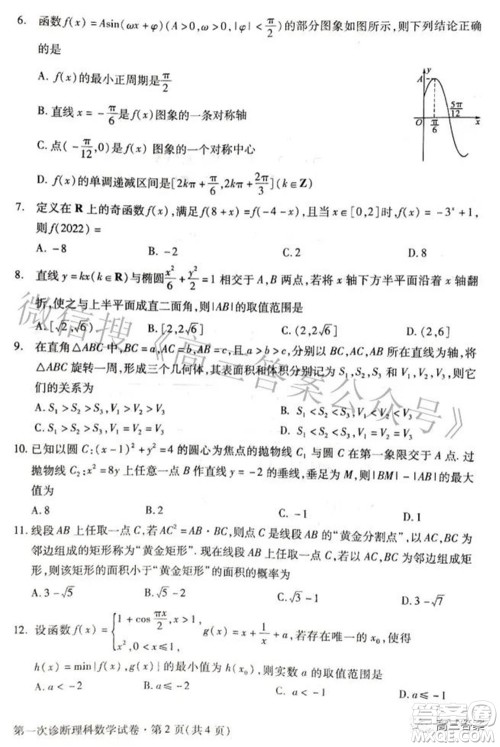 6. 函数f(x)=Asin(ωx+φ)(A>0,ω>0,|φ|<π/2)的部分图象如图所示,则下列结论正确
的是
A. f(x)的最小正周期是π/2
B. 直线x=-π/6是f(x)图象的一条对称轴
C. 点(-π/12,0)是f(x)图象的一个对称中心
D. f(x)的单调递减区间是[2kπ+π/6,2kπ+2π/3](k∈Z)
y
A
O
π/6
5π/12
x
7. 定义在R上的奇函数f(x),满足f(8+x)=f(-4-x),且当x∈[0,2]时,f(x)=-3ˣ+1,
则f(2022)=
A. -8 B. -2 C. 2 D. 8
8. 直线y=kx(k∈R)与椭圆x²/6+y²/2=1相交于A,B两点,若将x轴下方半平面沿着x轴翻
折,使之与上半平面成直二面角,则|AB|的取值范围是
A. [√2,√6) B. [2,√6] C. (2,√6] D. (2,6]
9. 在直角△ABC中,BC=a,AC=b,AB=c,且a<b<c,分别以BC,AC,AB所在直线为轴,将
△ABC旋转一周,形成三个几何体,其表面积和体积分别记为S₁,S₂,S₃和V₁,V₂,V₃,则它
们的关系为
A. S₁>S₂>S₃,V₁>V₂>V₃ B. S₁<S₂<S₃,V₁<V₂<V₃
C. S₁>S₂>S₃,V₁=V₂=V₃ D. S₁<S₂<S₃,V₁=V₂=V₃
10. 已知以圆C:(x-1)²+y²=4的圆心为焦点的抛物线C₁与圆C在第一象限交于A点,过
抛物线C₂:x²=8y上任意一点B作直线y=-2的垂线,垂足为M,则|BM|-|AB|的取值
范围是
A. 1 B. 2 C. -1 D. 8
11. 线段AB上任取一点C,若AC²=AB·BC,则点C是线段AB的“黄金分割点”,以AC,BC为
邻边组成的矩形称为“黄金矩形”.现在线段AB上任取一点C,若以AC,BC为邻边组成矩
形,则该矩形的面积小于“黄金矩形”的面积的概率为
A. 3-√5 B. C. √5-2 D. 3-√7
12. 设函数f(x)={1+cosπx/2,x>1, x²,0<x≤1, g(x)=x+1/x+a(x>0),若存在唯一的x₀,使得
h(x)=min{f(x),g(x)}的最小值为h(x₀),则实数a的取值范围为
A. a<-2 B. a≤-2 C. a<-1 D. a≤-1
第一次诊断理科数学试卷·第2页(共4页)
高三答案
微信搜《高三答案公众号》